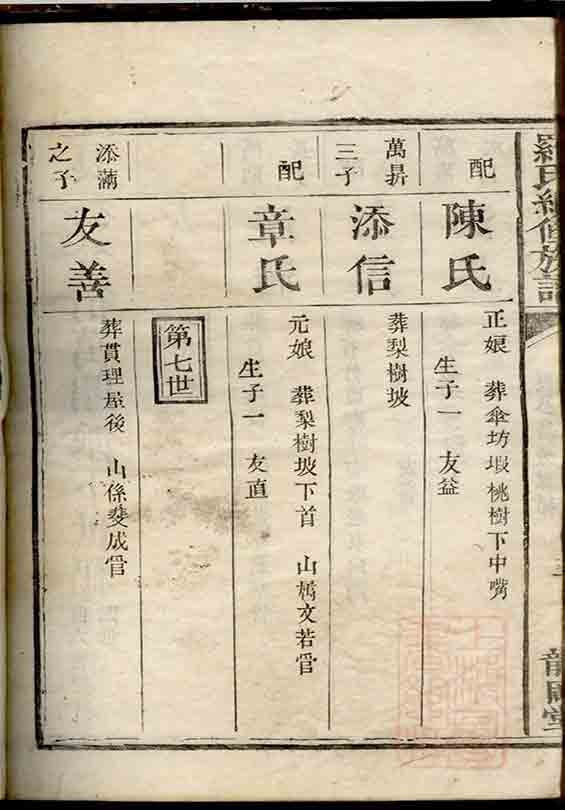 羅氏續修族譜
配
陳氏
正娘 葬傘坊塅桃樹下中嘴
生子一 友益
萬昇
三子
添信
葬梨樹坡
配
章氏
元娘 葬梨樹坡下首 山 文若管
生子一 友直
第七世
添滿
之子
友善
葬貫理屋後 山係斐成管